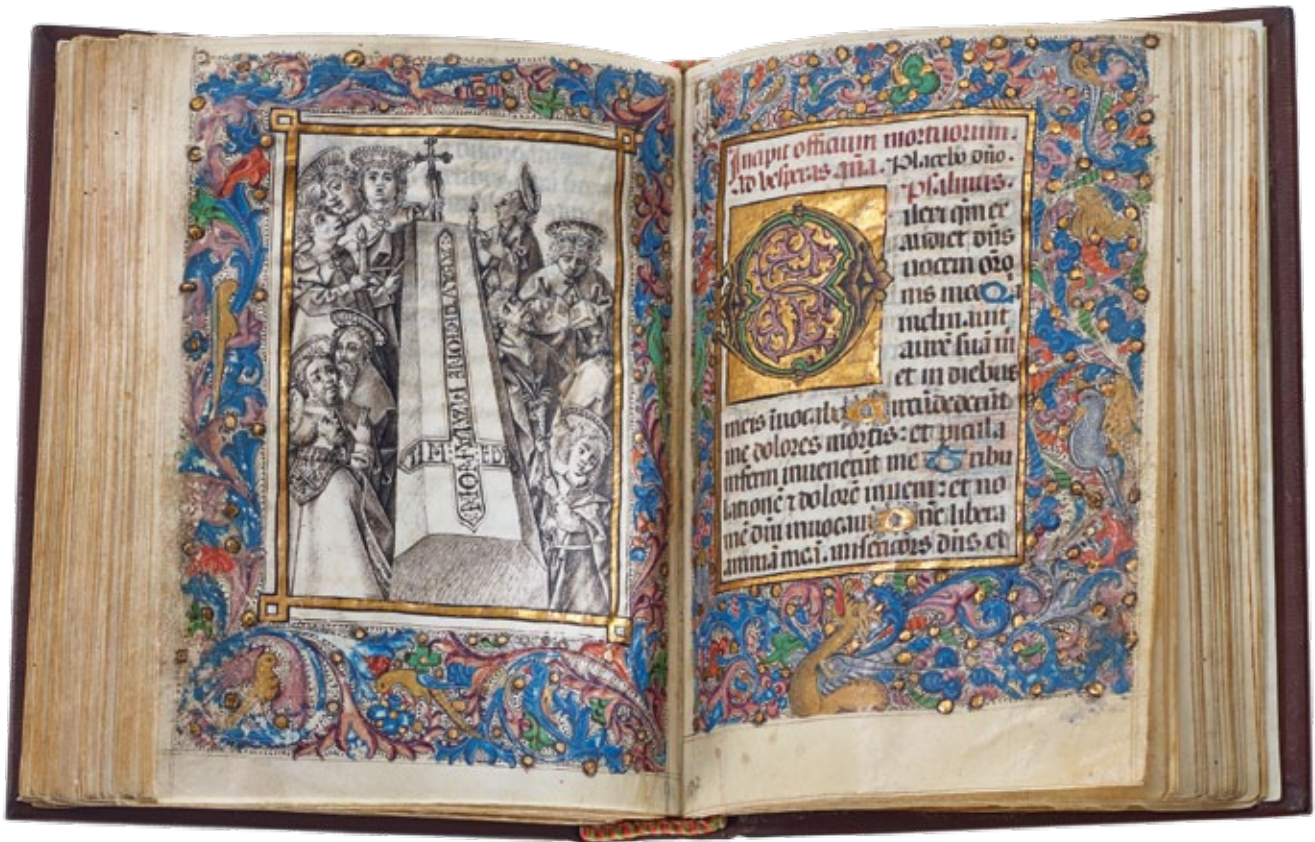 Incipit officium mortuorum.
Ad vesperas aña. Placebo dño.
psalmus.
Dilexi qm̄ ex
audiet dñs
uocem oro
nis mee Q
inclinauit
aurē suā m
et in diebus
meis inuocabo Circūdederūt
me dolores mortis: et picula
inferni inuenerūt me Tribu
lationē ⁊ dolorē inueni: et no
mē dñi inuocaui O dñe libera
animā meā. misericors dñs et